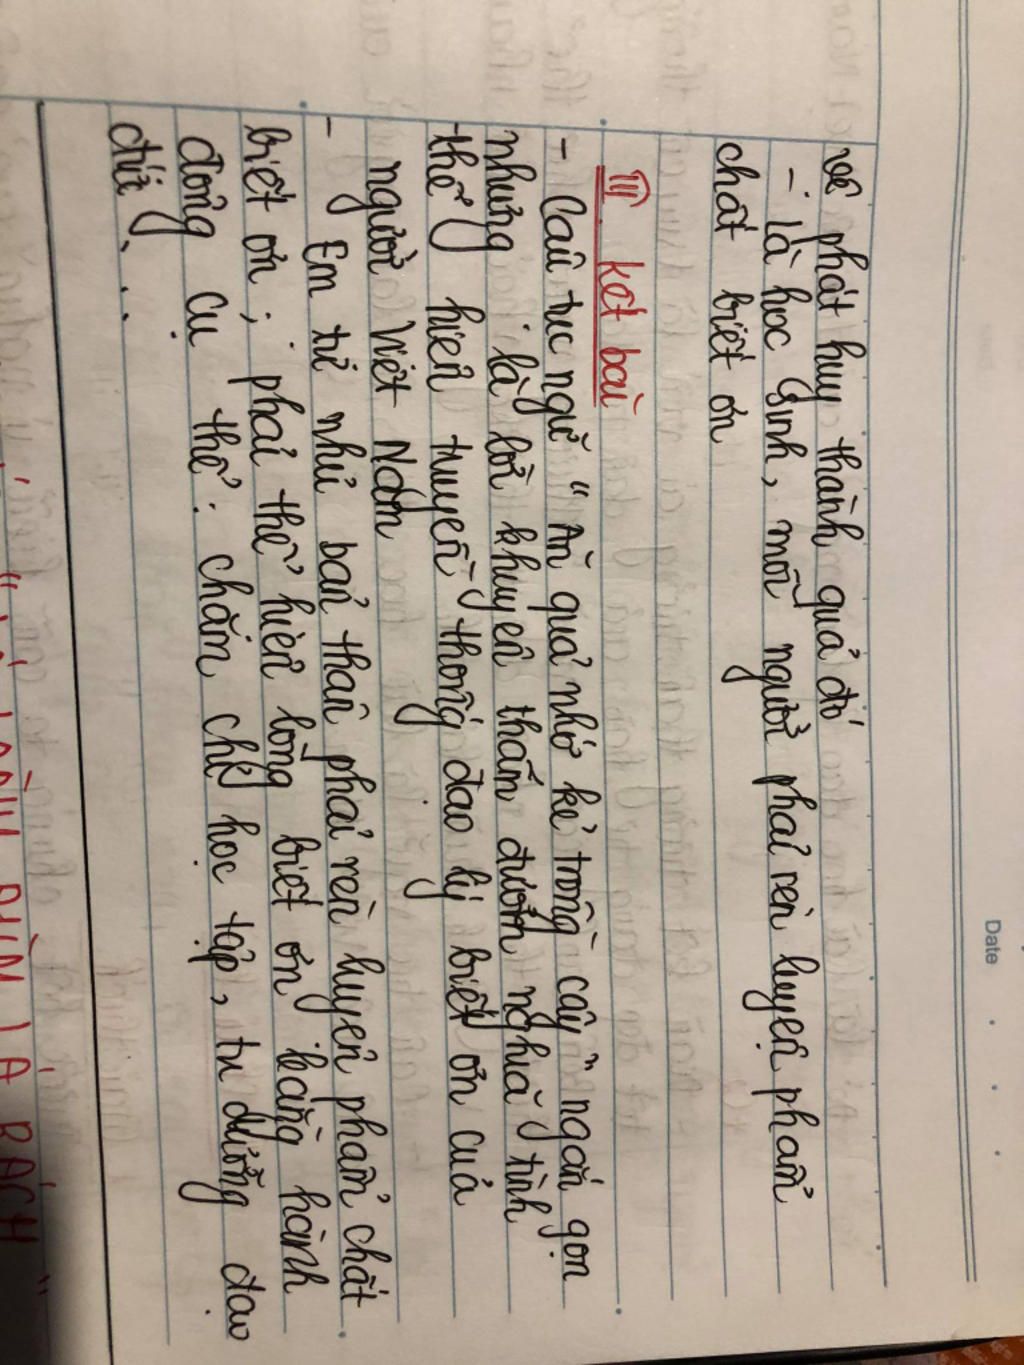 Date
vệ phát huy thành quả đó
- là học sinh, mỗi người phải rèn luyện phẩm
chất biết ơn
III kết bài
- Câu tục ngữ "Ăn quả nhớ kẻ trồng cây" ngắn gọn
nhưng là lời khuyên thấm đượm nghĩa tình
thể hiện truyền thống đạo lý biết ơn của
người Việt Nam
- Em tự nhủ bản thân phải rèn luyện phẩm chất
biết ơn; phải thể hiện lòng biết ơn bằng hành
động cụ thể: chăm chỉ học tập, tu dưỡng đạo
đức...
LÀNH ĐÙM LÁ RÁCH"